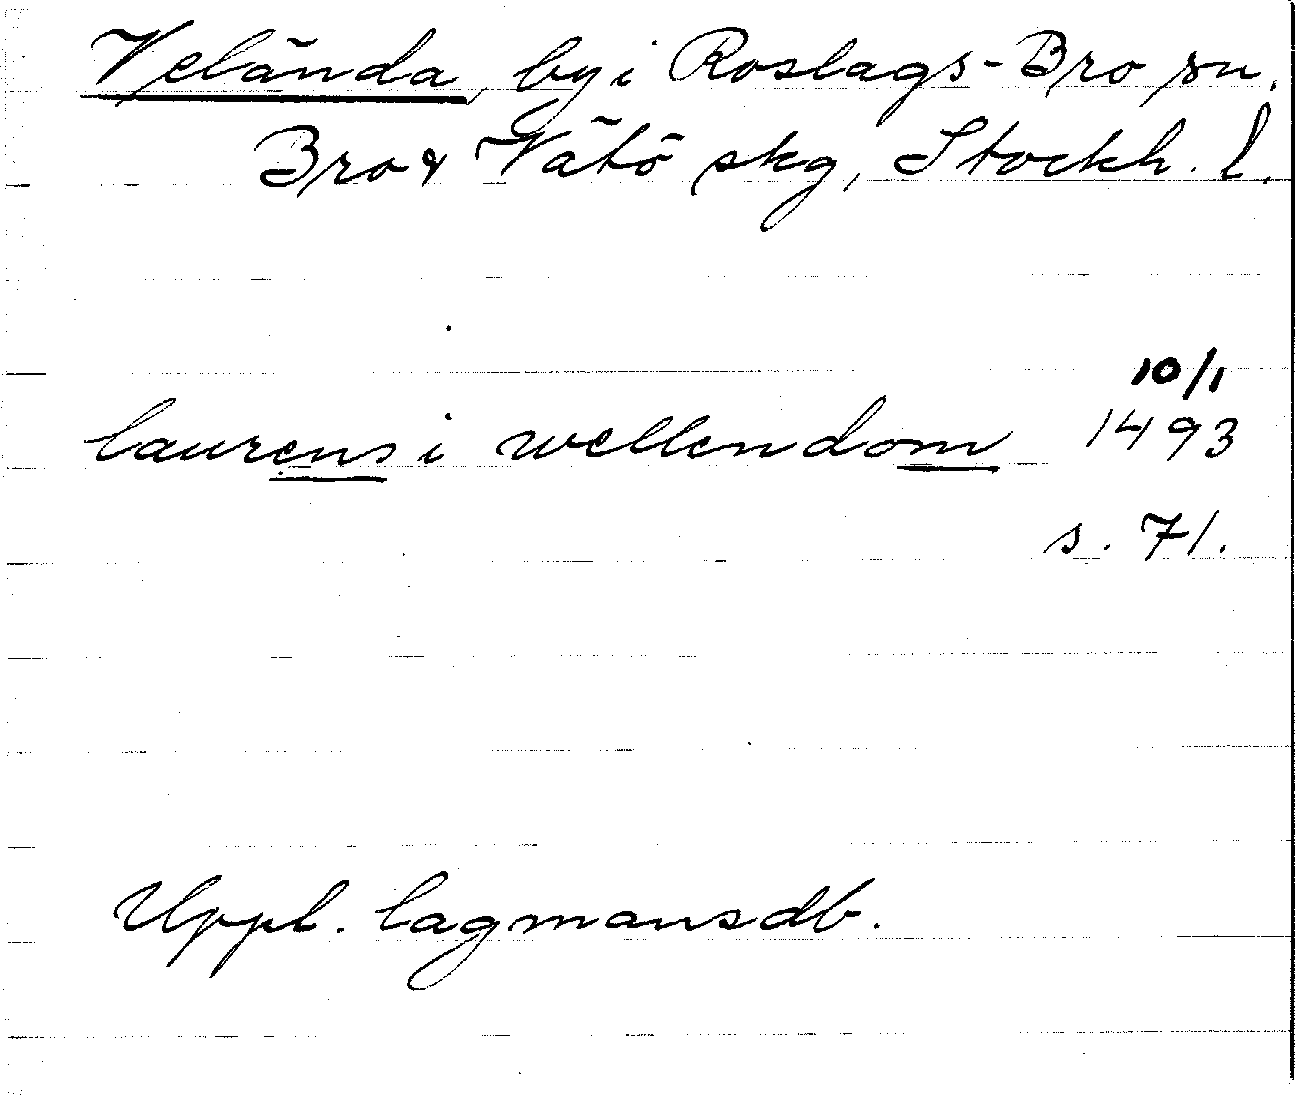 Velända, by i Roslags-Bro sn.
Bro & Vätö skg, Stockh. l.
10/1
laurens i wellendom 1493
s. 71.
Uppl. lagmansdb.